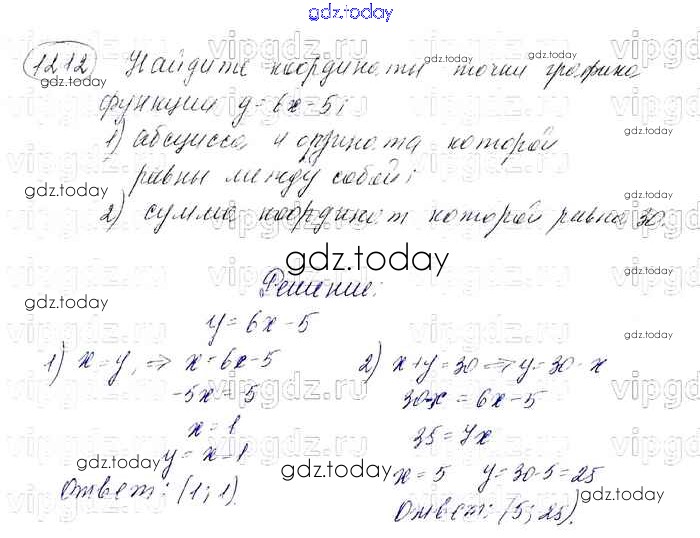 gdz.today
1212 Найдите координаты точки графика
функции y=6x-5;
1) абсцисса и ордината которой
равны между собой;
2) сумма координат которой равна 30.
gdz.today
Решение:
y=6x-5
1) x=y, ⇒ x=6x-5
-5x=-5
x=1
y=x=1
Ответ: (1; 1).
2) x+y=30 ⇒ y=30-x
30-x=6x-5
35=7x
x=5 y=30-5=25
Ответ: (5; 25).